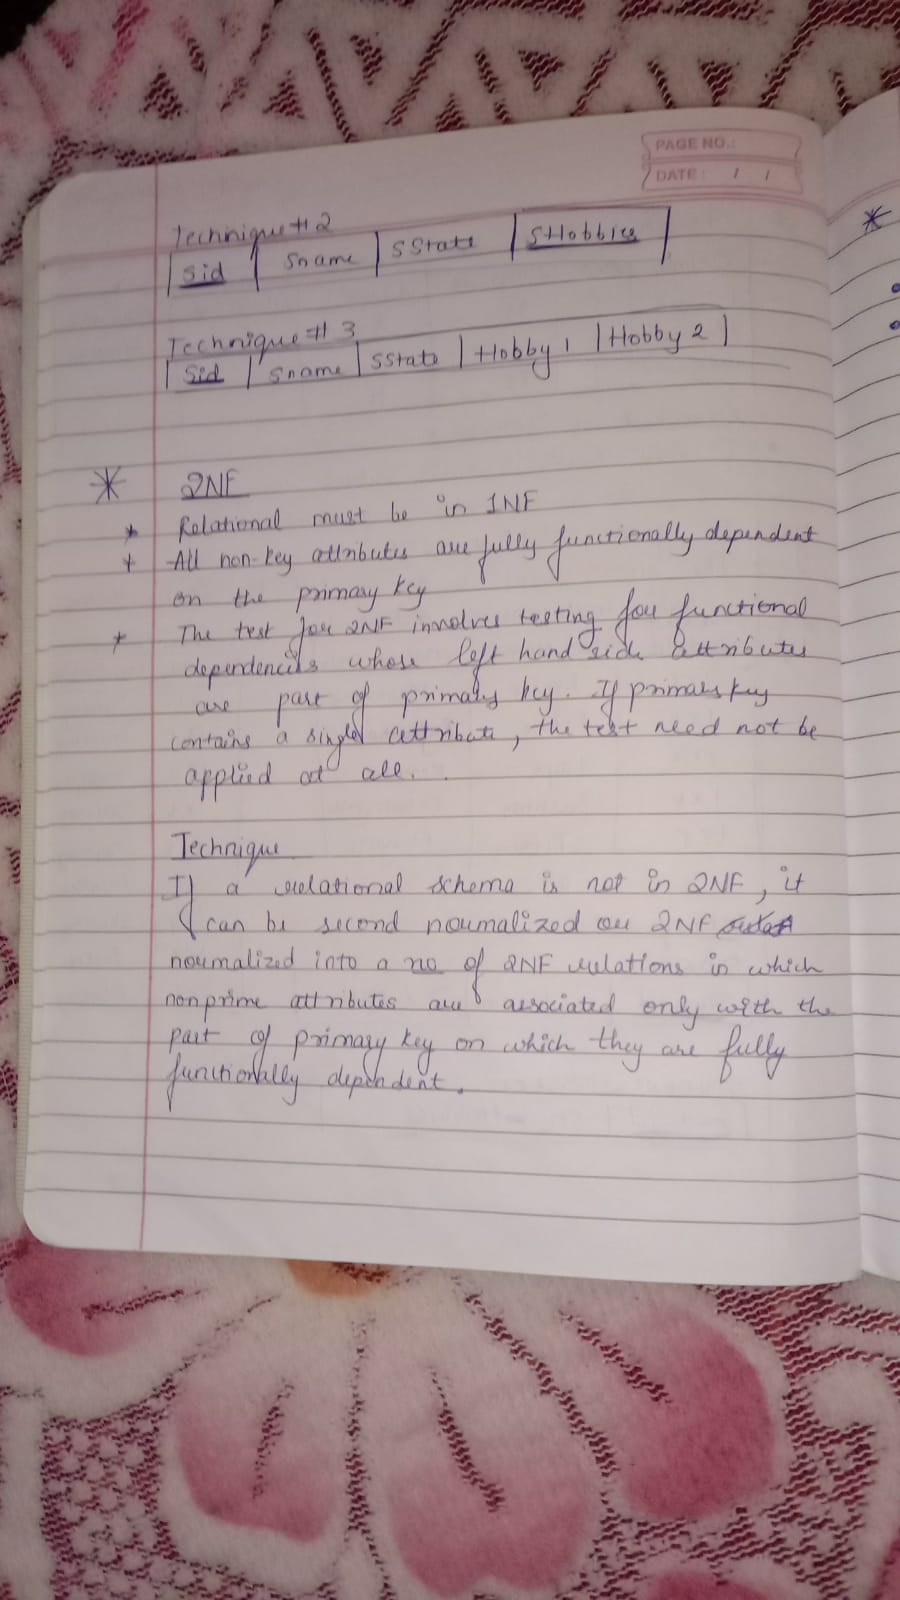 PAGE NO.:
DATE: / /
Technique # 2
| Sid | Sname | SState | SHobbies |
Technique # 3
| Sid | Sname | SState | Hobby 1 | Hobby 2 |
* 2NF
* Relational must be in 1NF
* All non-key attributes are fully functionally dependent
on the primary key
* The test for 2NF involves testing for functional
dependencies whose left hand side attributes
are part of primary key. If primary key
contains a single attribute, the test need not be
applied at all.
Technique
If a relational schema is not in 2NF, it
can be second normalized or 2NF
normalized into a no of 2NF relations in which
nonprime attributes are associated only with the
part of primary key on which they are fully
functionally dependent.
*